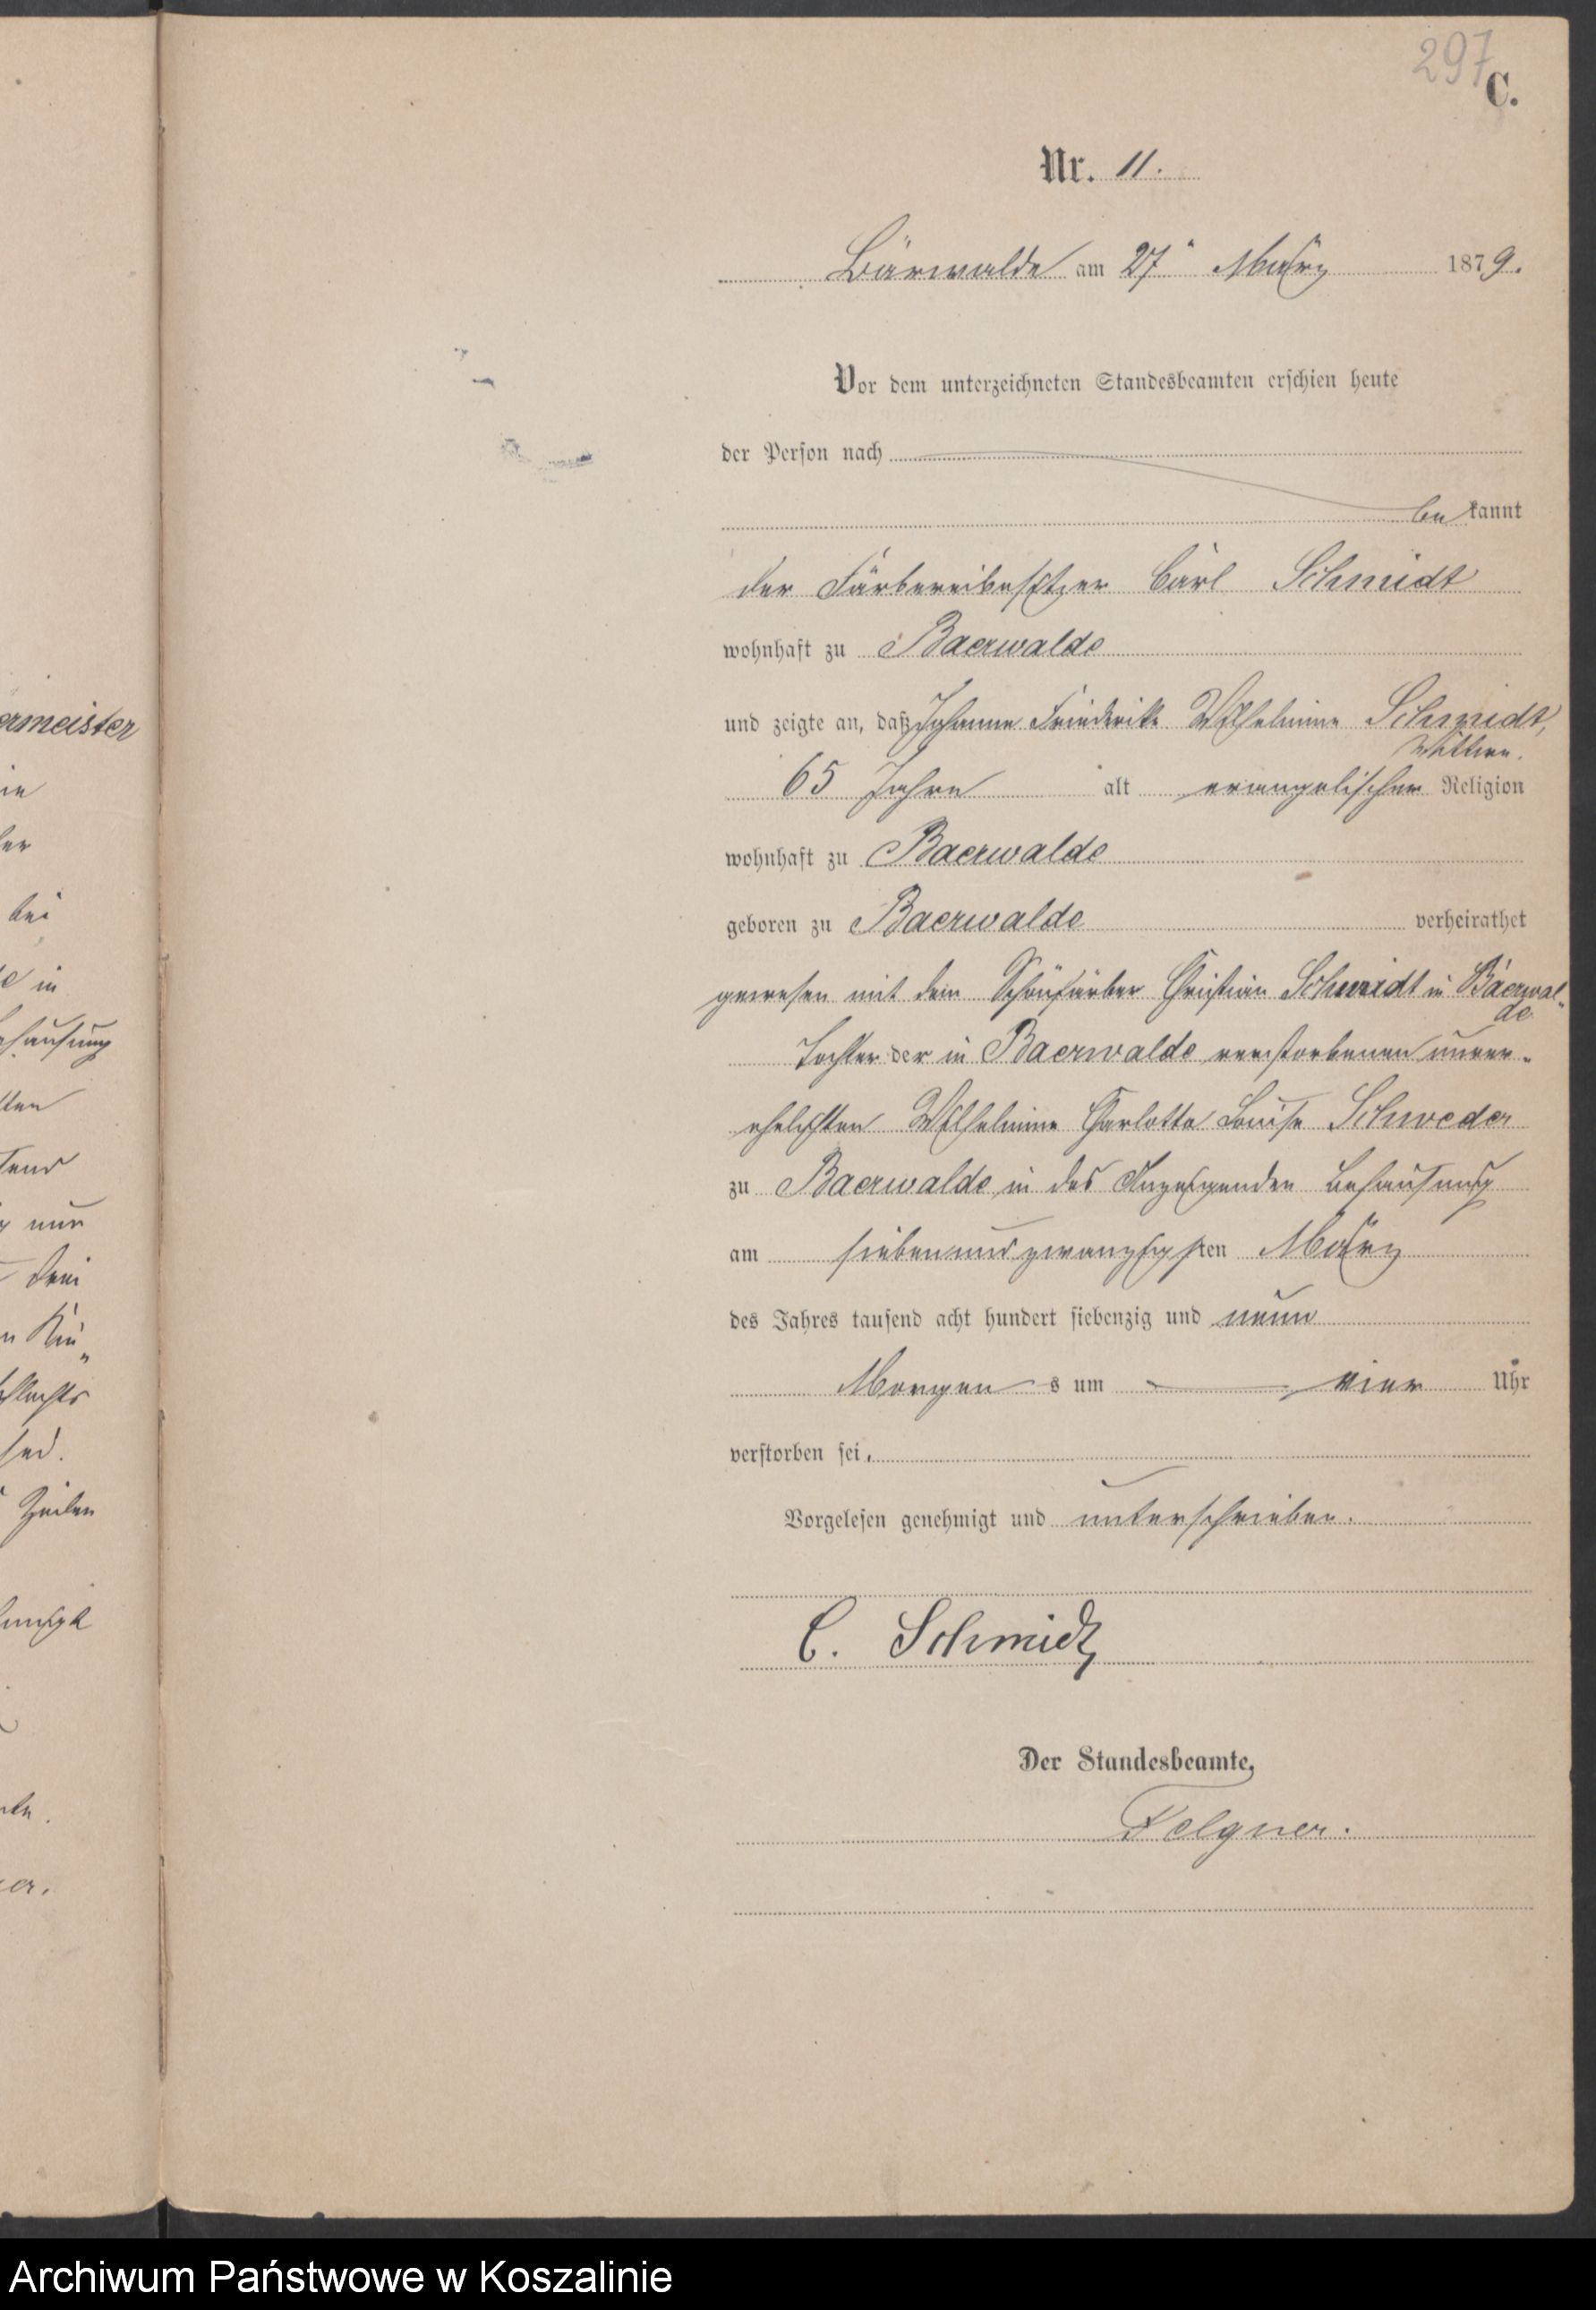 ermeister
in
bei
in
Behausung
und
nur
drei
Zeilen
297
C.
Nr. 11.
Bärwalde am 27ⁿ März 1879.
Vor dem unterzeichneten Standesbeamten erschien heute
der Person nach
bekannt
der Färbereibesitzer Carl Schmidt
wohnhaft zu Baerwalde
und zeigte an, daß Johanne Friederike Wilhelmine Schmidt,
Wittwe.
65 Jahre alt evangelischer Religion
wohnhaft zu Baerwalde
geboren zu Baerwalde verheirathet
gewesen mit dem Schönfärber Christian Schmidt in Baerwal-
de
Tochter der in Baerwalde verstorbenen unver-
ehelichten Wilhelmine Charlotte Louise Schweder
zu Baerwalde in des Anzeigenden Behausung
am siebenundzwanzigsten März
des Jahres tausend acht hundert siebenzig und neun
Morgens um vier Uhr
verstorben sei.
Vorgelesen genehmigt und unterschrieben.
C. Schmidt
Der Standesbeamte,
Felgner.
Archiwum Państwowe w Koszalinie